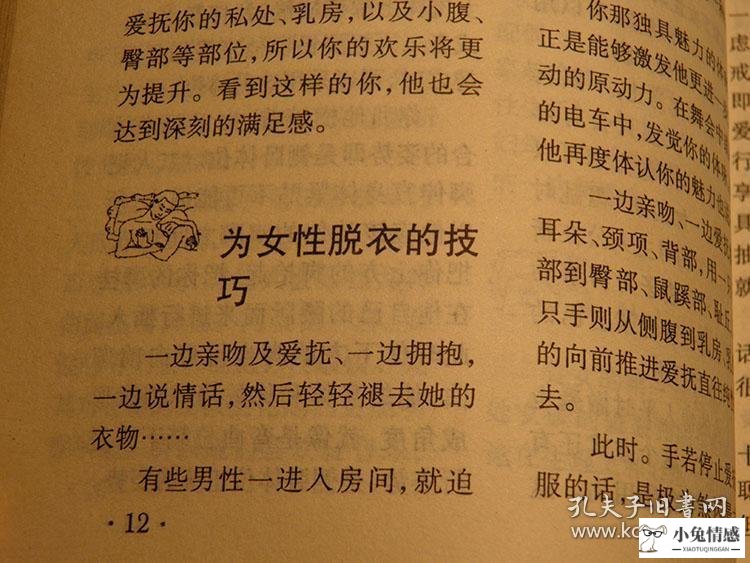 爱抚你的私处、乳房，以及小腹、
臀部等部位，所以你的欢乐将更
为提升。看到这样的你，他也会
达到深刻的满足感。
为女性脱衣的技
巧
一边亲吻及爱抚、一边拥抱，
一边说情话，然后轻轻褪去她的
衣物……
有些男性一进入房间，就迫
·12·
你那独具魅力的体
正是能够激发他更进一步
动的原动力。在舞会中
的电车中，发觉你的体
他再度体认你的魅力
一边亲吻、一边爱抚
耳朵、颈项、背部，用一
部到臀部、鼠蹊部、耻丘
只手则从侧腹到乳房、
的向前推进爱抚直往
去。
此时。手若停止爱
服的话，是极
虑
戒
即
爱
行
享
具
抽
就
话
很
孔夫子旧书网
小兔情感
XIAOTUQINGGAN